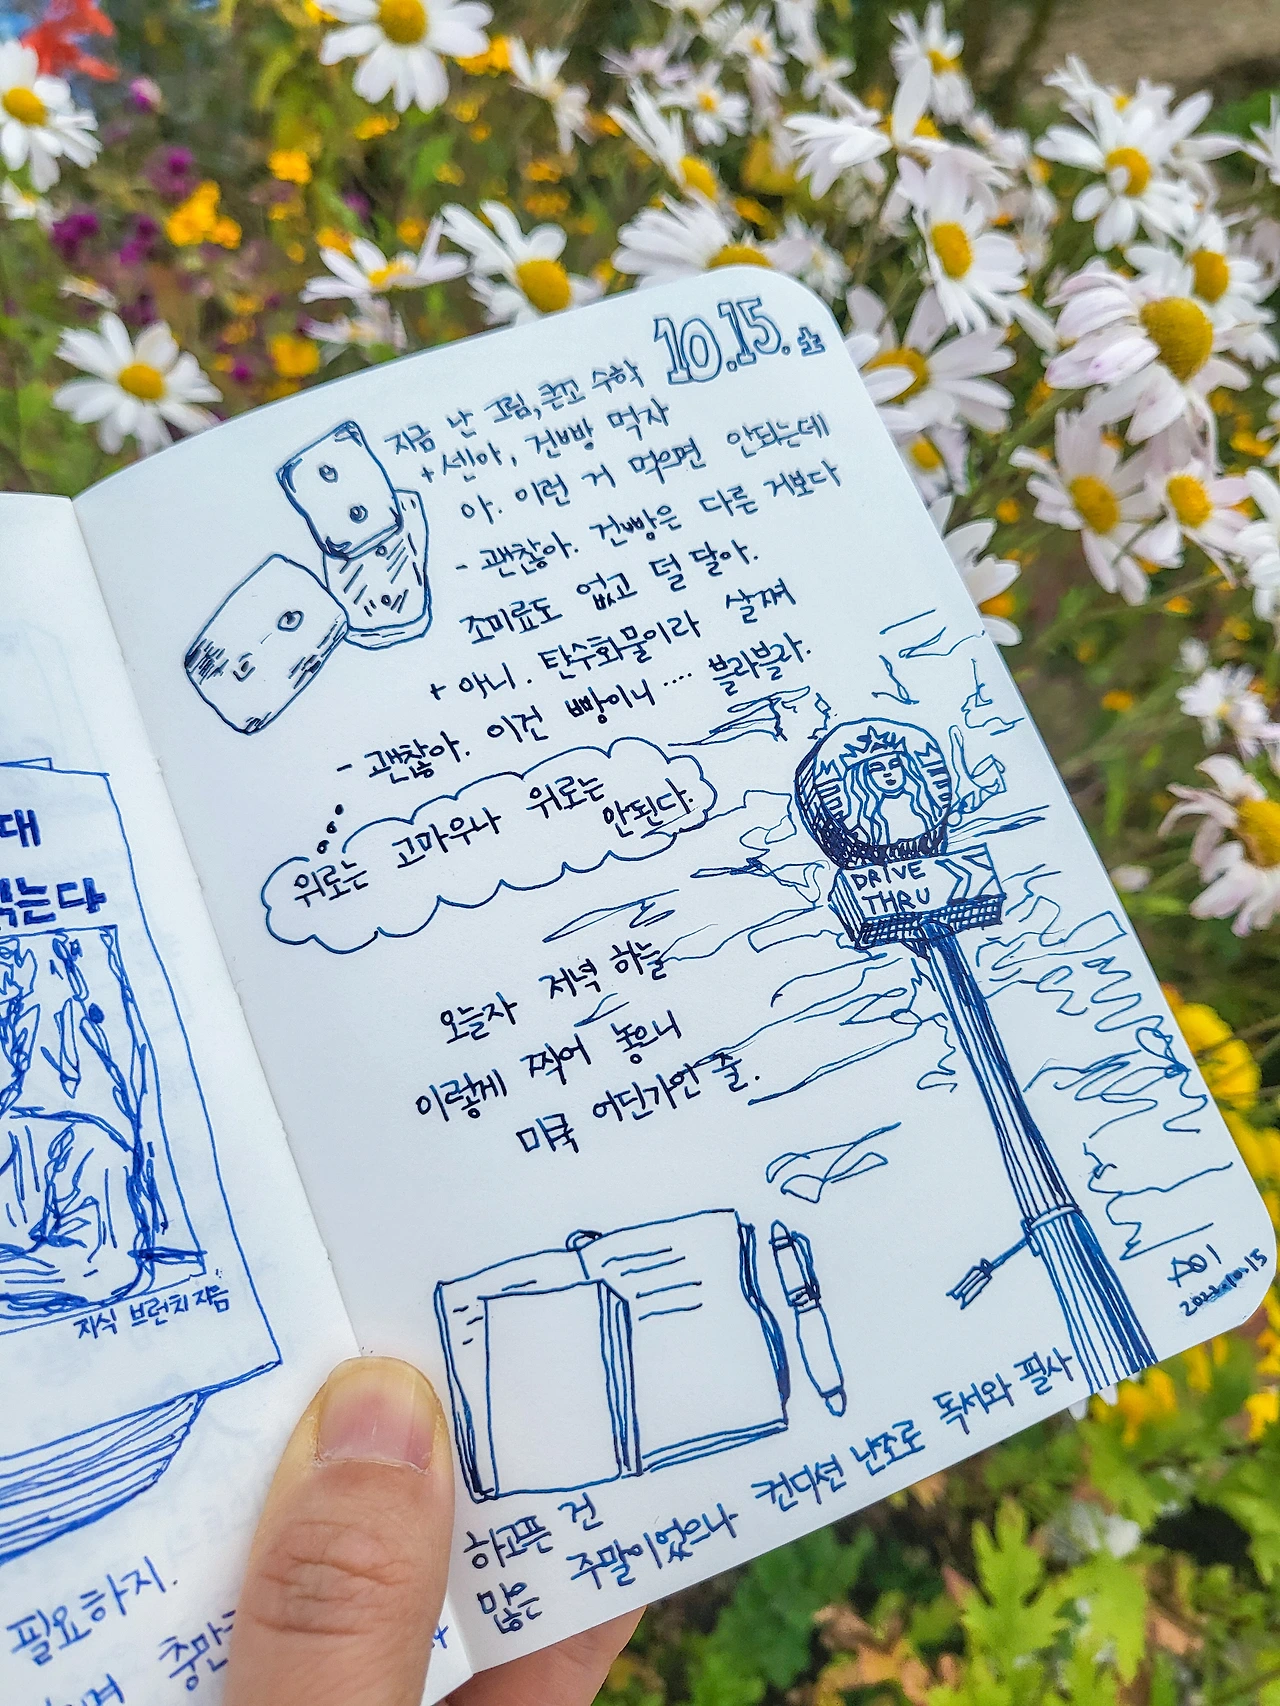 대
는다
지식 브런치 지음
필요하지.
10.15. 토
지금 난 그림, 큰꼬 수학
+ 센아, 건빵 먹자
아. 이런 거 먹으면 안되는데
- 괜찮아. 건빵은 다른 거보다
조미료도 없고 덜 달아.
+ 아니. 탄수화물이라 살쪄
- 괜찮아. 이건 빵이니 .... 블라블라.
위로는 고마우나 위로는
안된다.
DRIVE
THRU
오늘자 저녁 하늘
이렇게 찍어 놓으니
미쿡 어딘가인 줄.
2022.10.15
하고픈 건
많은 주말이었으나 컨디션 난조로 독서와 필사